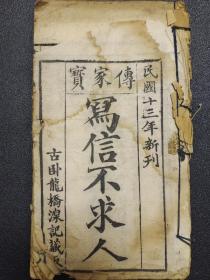 民國十三年新刊
傳家寶
寫信不求人
古卧龍橋湶記藏